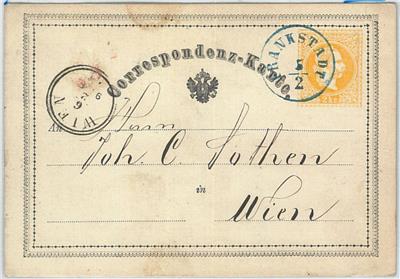 Correspondenz-Karte.
FRANKSTADT
5/2
2 Kr.
WIEN
An
Herrn
Joh. C. Sothen
in
Wien